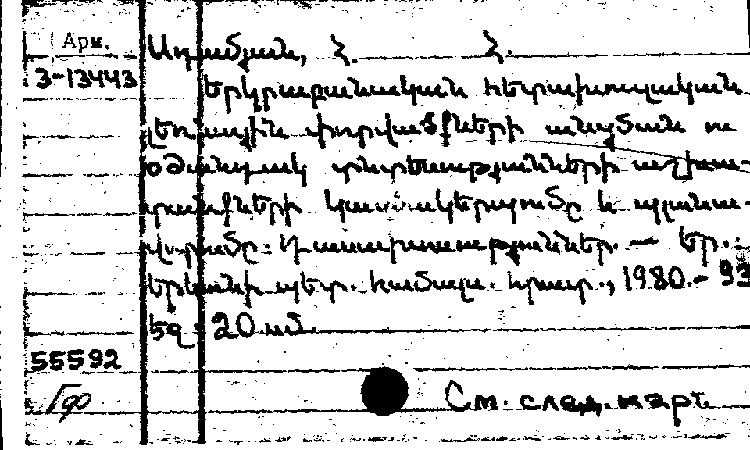 Арм.
Ադամյան, Հ. Հ.
3-13443
Երկրաբանական հետախուզական
լեռնային փորվածքների անցման ու
օժանդակ տնտեսությունների աշխա-
տանքների կազմակերպումը և պլանա-
վորումը: Դասախոսություններ. — Եր.:
Երևանի պետ. համալս. հրատ., 1980.- 93
եզ: 20 սմ.
55592
Гф
См. след. карт.